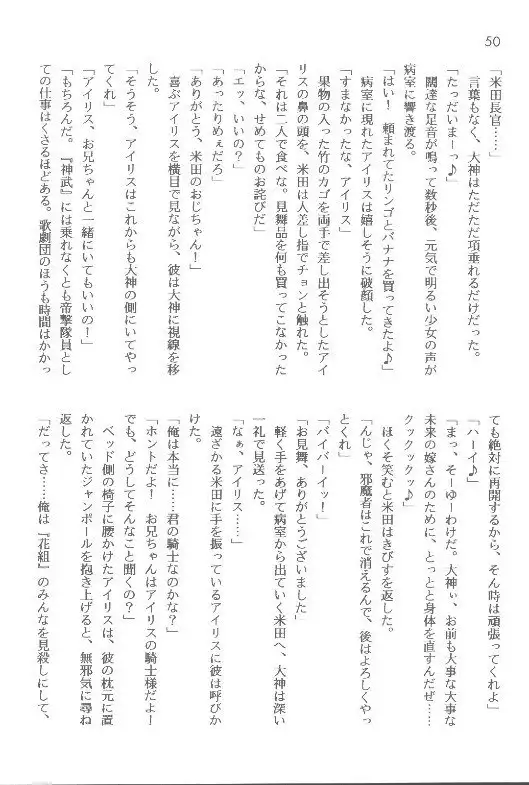 50
「米田長官……」
言葉もなく、大神はただただ項垂れるだけだった。
「たっだいまーっ♪」
闊達な足音が鳴って数秒後、元気で明るい少女の声が
病室に響き渡る。
「はい！　頼まれてたリンゴとバナナを買ってきたよ♪」
病室に現れたアイリスは嬉しそうに破顔した。
「すまなかったな、アイリス」
果物の入った竹のカゴを両手で差し出そうとしたアイ
リスの鼻の頭を、米田は人差し指でチョンと触れた。
「それは二人で食べな。見舞品を何も買ってこなかった
からな、せめてものお詫びだ」
「エッ、いいの？」
「あったりめぇだろ」
「ありがとう、米田のおじちゃん！」
喜ぶアイリスを横目で見ながら、彼は大神に視線を移
した。
「そうそう、アイリスはこれからも大神の側にいてやっ
てくれ」
「アイリス、お兄ちゃんと一緒にいてもいいの！」
「もちろんだ。『神武』には乗れなくとも帝撃隊員とし
ての仕事はくさるほどある。歌劇団のほうも時間はかかっ
ても絶対に再開するから、そん時は頑張ってくれよ」
「ハーイ♪」
「まっ、そーゆーわけだ。大神ぃ、お前も大事な大事な
未来の嫁さんのために、とっとと身体を直すんだぜ……
クックックッ♪」
ほくそ笑むと米田はきびすを返した。
「んじゃ、邪魔者はこれで消えるんで、後はよろしくやっ
とくれ」
「バイバーイッ！」
「お見舞、ありがとうございました」
軽く手をあげて病室から出ていく米田へ、大神は深い
一礼で見送った。
「なぁ、アイリス……」
遠ざかる米田に手を振っているアイリスに彼は呼びか
けた。
「俺は本当に……君の騎士なのかな？」
「ホントだよ！　お兄ちゃんはアイリスの騎士様だよ！
でも、どうしてそんなこと聞くの？」
ベッド側の椅子に腰かけたアイリスは、彼の枕元に置
かれていたジャンポールを抱き上げると、無邪気に尋ね
返した。
「だってさ……俺は『花組』のみんなを見殺しにして、